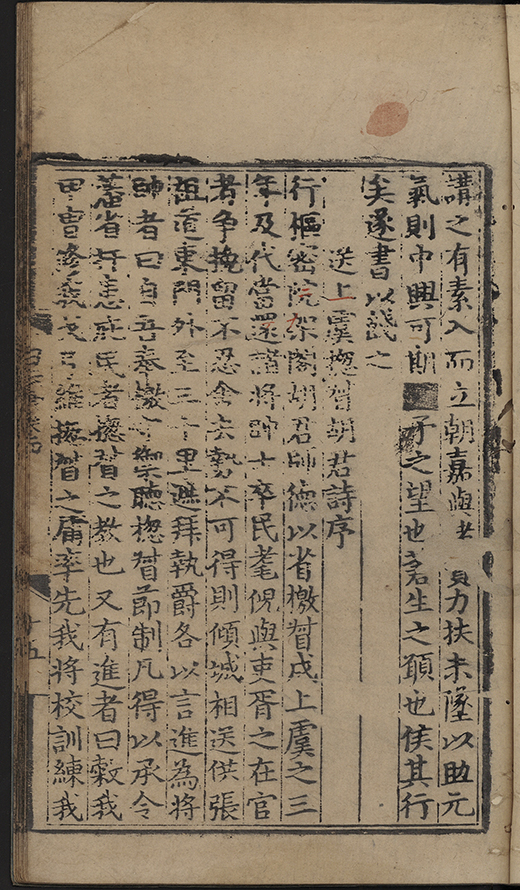 講之有素入而立朝嘉與 力扶未墜以助元
氣則中興可期 予之望也蒼生之願也侯其行
矣遂書以餞之
送上虞揔督胡君詩序
行樞密院架閣胡君師德以省檄督戍上虞之三
年及代當還諸將帥士卒民耄倪與吏胥之在官
者爭挽留不忍舍去勢不可得則傾城相送供張
道東門外至三十里遮拜執爵各以言進為將
帥者曰自吾奉檄 禦聽揔督節制凡得以承令
省 民者揔督之教也又有進者曰穀我
甲胄 我弓 維揔督之庸率先我將校訓練我
十五